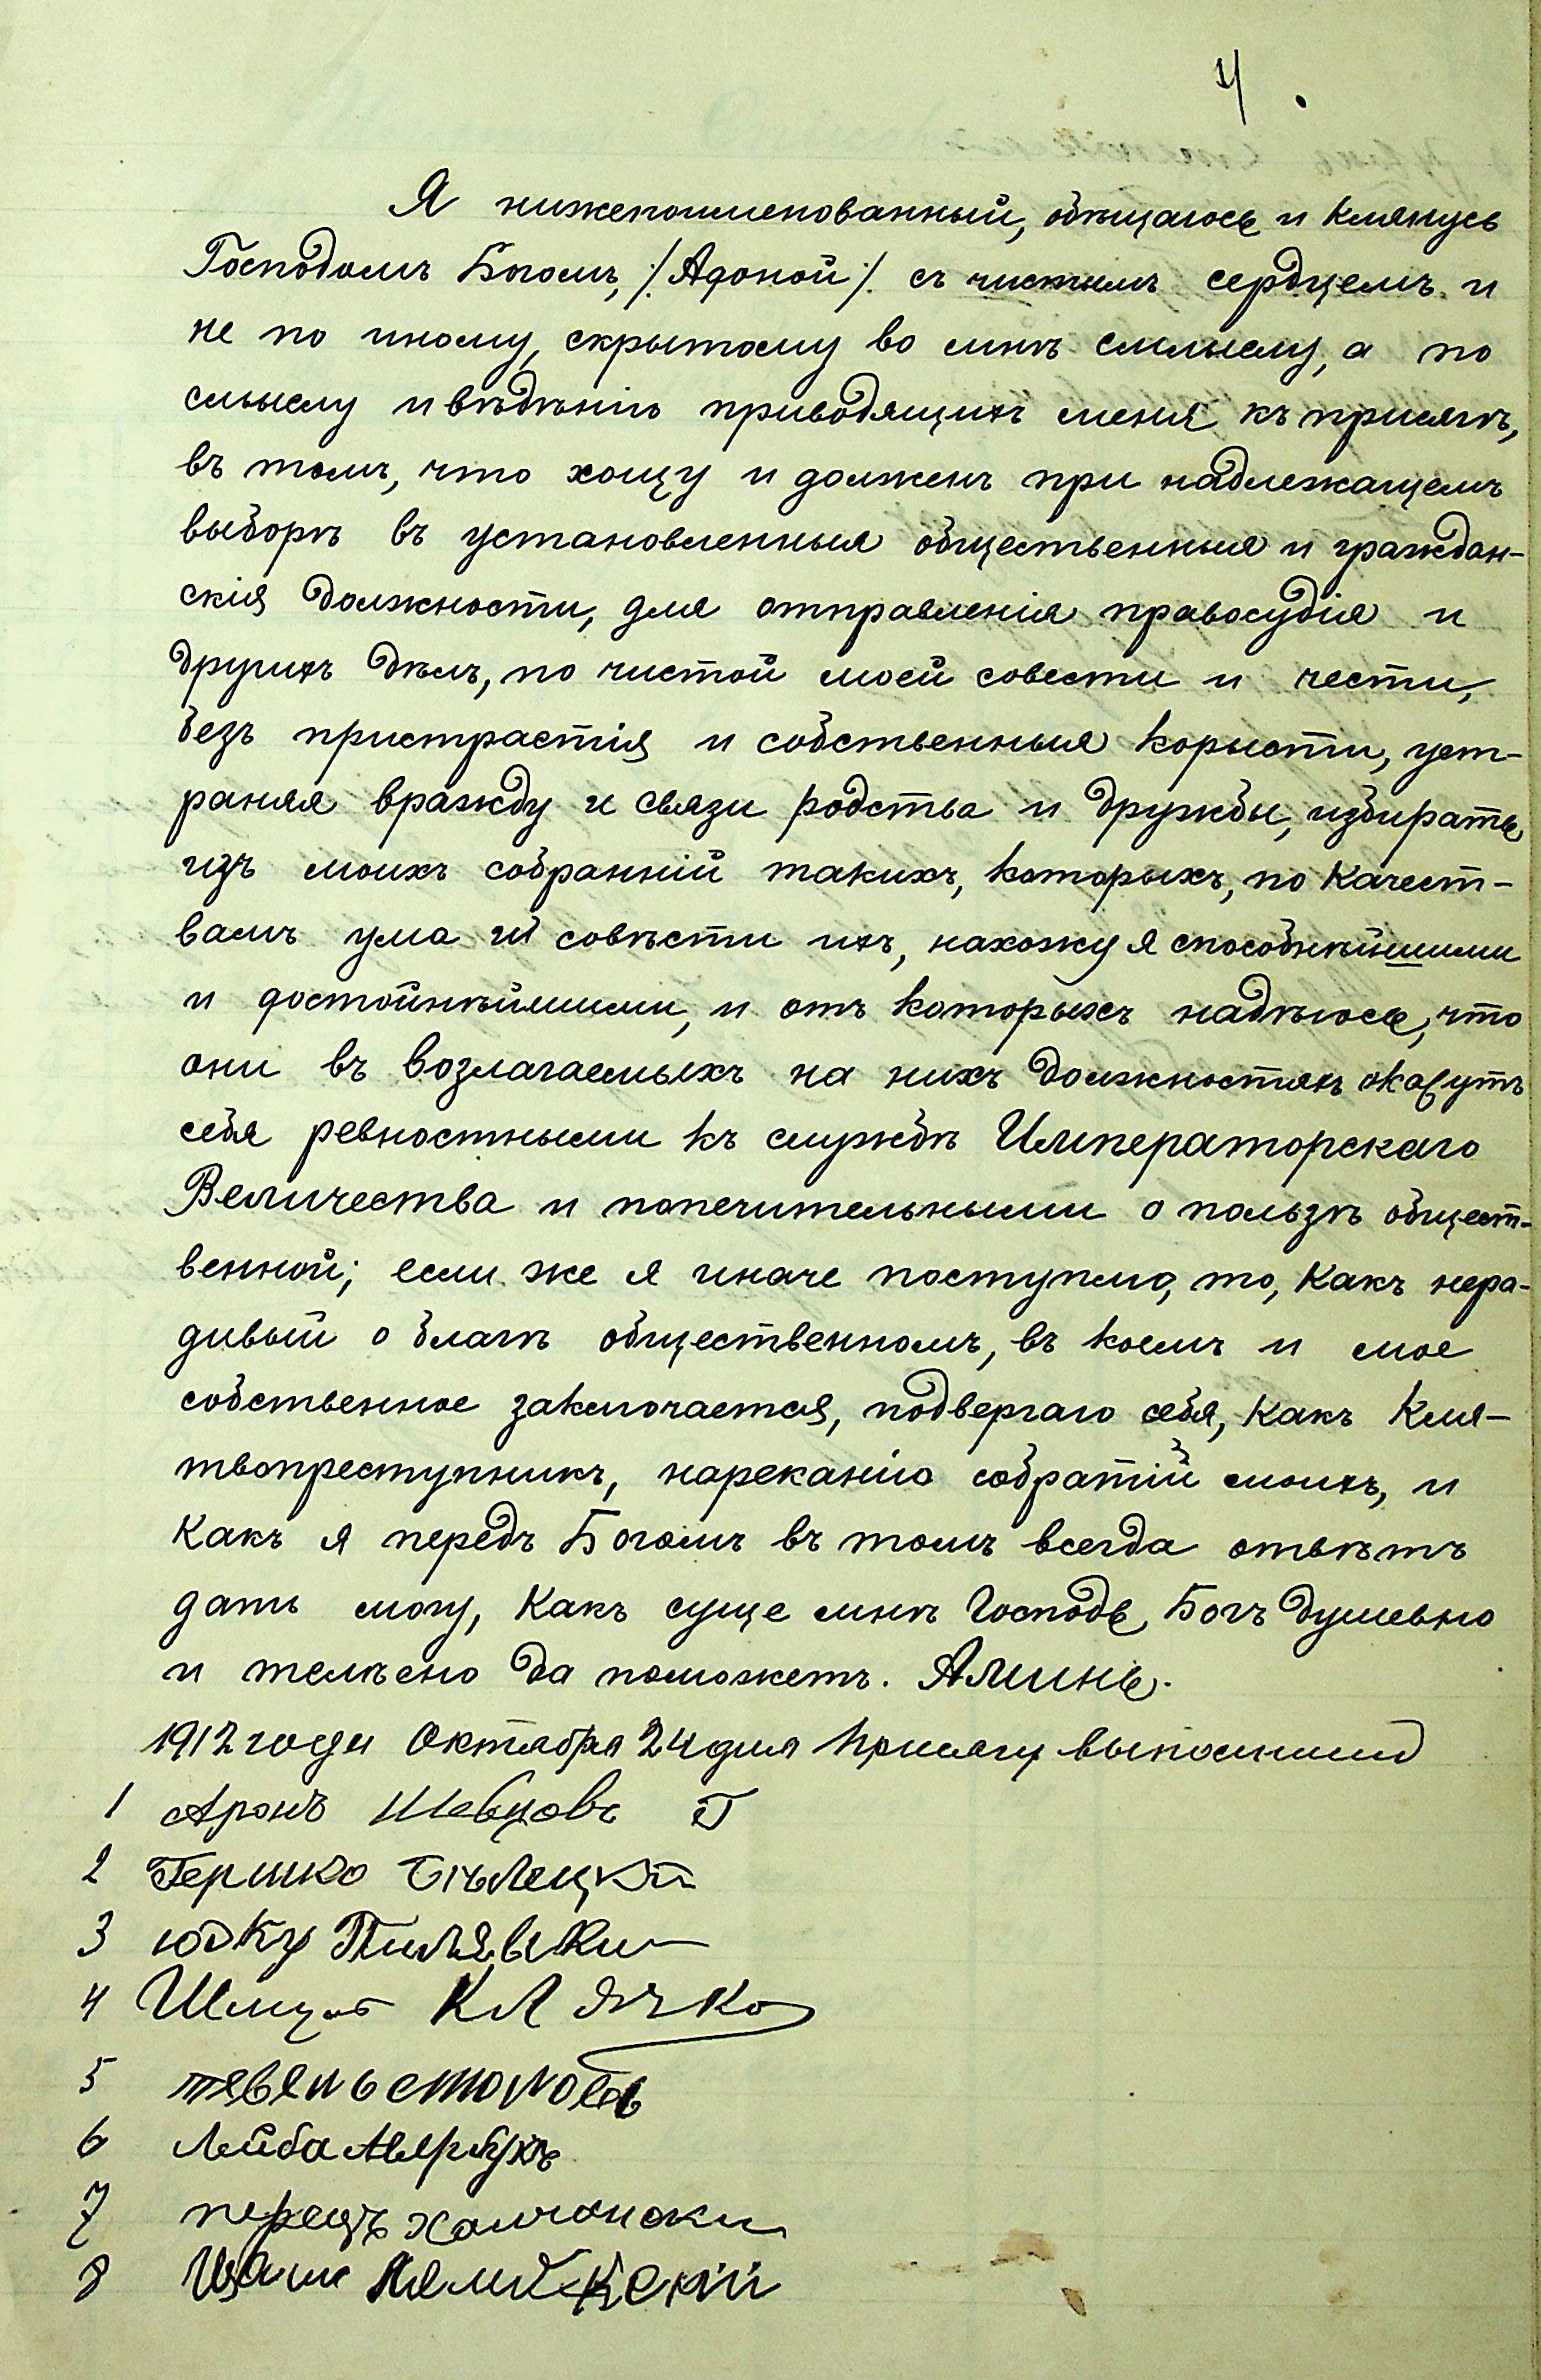 4.
Я нижепоименованный, обѣщаюсь и клянусь
Господомъ Богомъ, /:Адоной:/ съ чистымъ сердцемъ и
не по иному, скрытому во мнѣ смыслу, а по
смыслу и вѣдѣнію приводящихъ меня къ присягѣ,
въ томъ, что хощу и долженъ при надлежащемъ
выборѣ въ установленныя общественныя и граждан-
скія должности, для отправленія правосудія и
другихъ дѣлъ, по чистой моей совести и чести,
безъ пристрастія и собственныя корысти, уст-
раняя вражду и связи родства и дружбы, избирать
изъ моихъ собранній такихъ, которыхъ, по качест-
вамъ ума и совѣсти ихъ, нахожу я способнѣйшими
и достойнѣйшими, и отъ которыхъ надѣюсь, что
они въ возлагаемыхъ на нихъ должностяхъ окажутъ
себя ревностными къ службѣ Императорскаго
Величества и попечительными о пользѣ общест-
венной; если же я иначе поступлю, то, какъ нера-
дивый о благѣ общественномъ, въ коемъ и мое
собственное заключается, подвергаю себя, какъ кля-
твопреступникъ, нареканію собратій моихъ, и
какъ я передъ Богомъ въ томъ всегда отвѣтъ
дать могу, какъ суще мнѣ Господь Богъ душевно
и телѣсно да поможетъ. Аминь.
1912 года Октября 24 дня присягу выполнили
1 Аронъ Шевцовъ
2 Гершко Бѣлецкій
3 Юдку
4 КЛЯЧКо
5
6 Лейба Авербухъ
7 перецъ
8